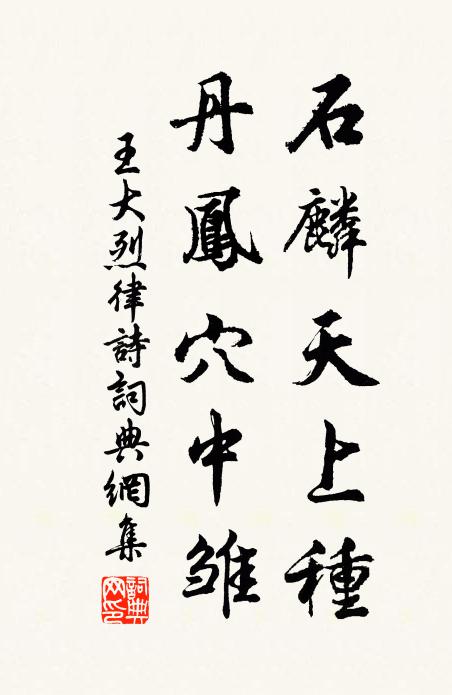 石麟天上種
丹鳳穴中雛
王大烈律詩詞典網集
詞典網印